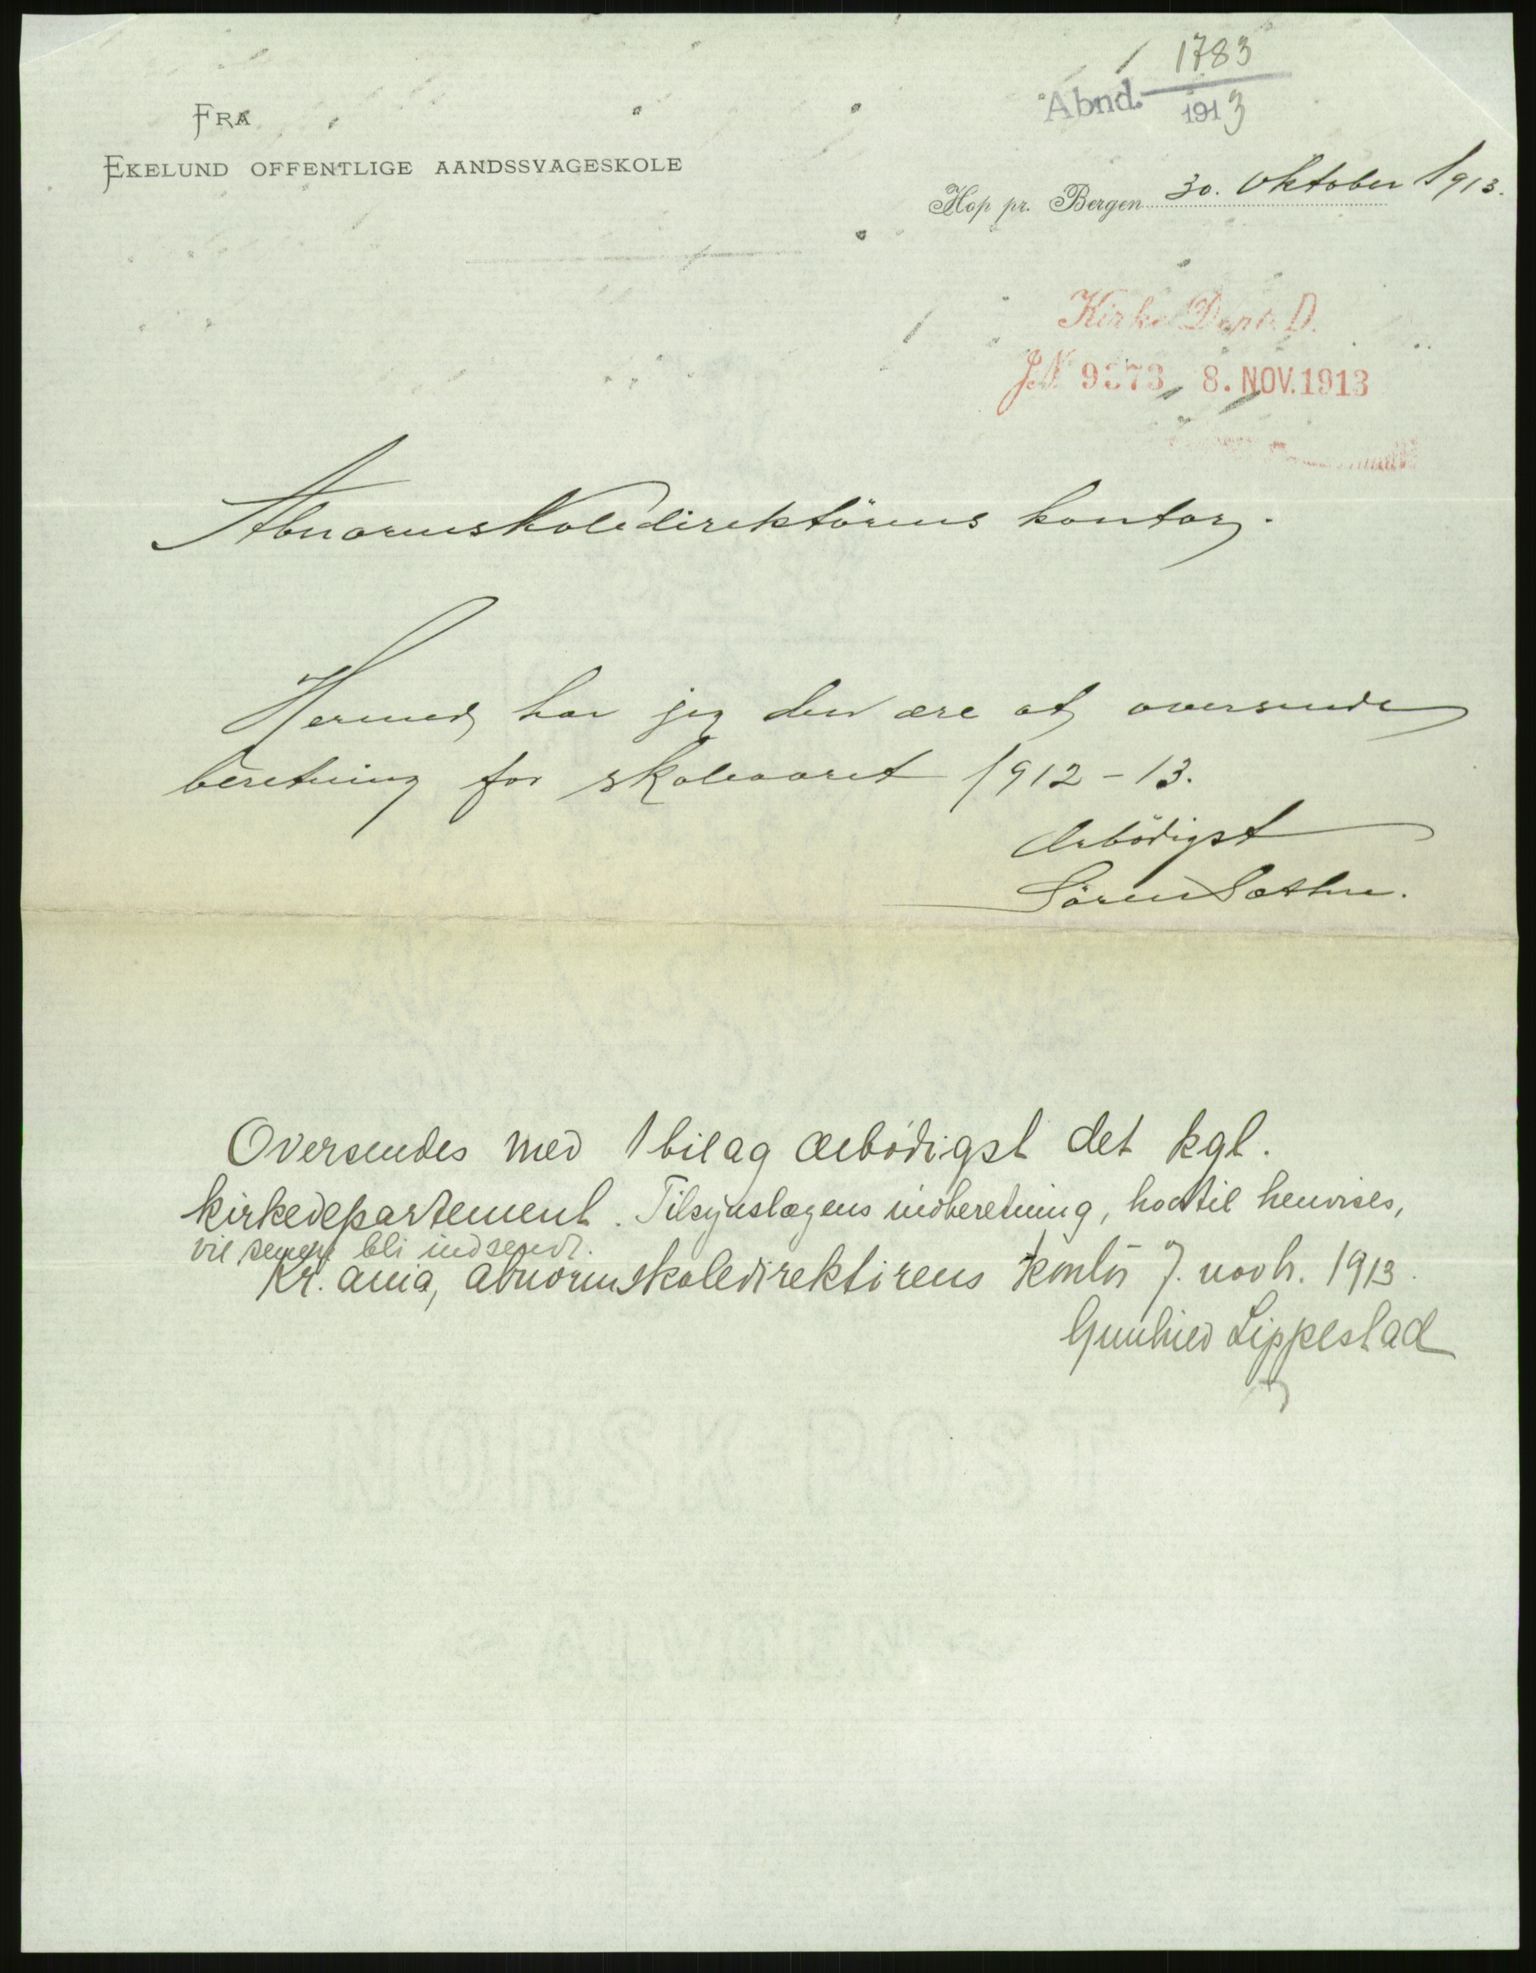 1783
Abnd. 1913
FRA
EKELUND OFFENTLIGE AANDSSVAGESKOLE
Hop pr. Bergen 30. Oktober 1913.
Kirke Dept. D.
JN 9373 8. NOV. 1913
Abnormskoledirektörens kontor.
Hermed har jeg den ære at oversende
beretning for skoleaaret 1912-13.
Ærbödigst
Sören Sæthre.
Oversendes med 1 bilag ærbödigst det kgl.
kirkedepartement. Tilsynslægens indberetning, hvortil henvises,
vil senere bli indsendt.
Kr.ania, abnormskoledirektörens kontor 7. novbr. 1913.
Gunhild Lippestad